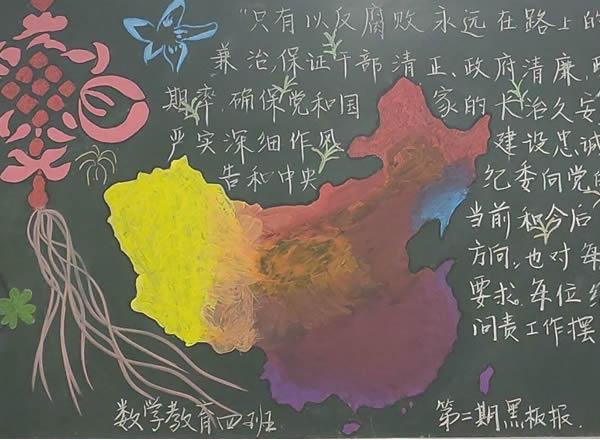 “只有以反腐败永远在路上的
兼治,保证干部清正、政府清廉,
期率,确保党和国家的大治久安
严实深细作风 建设忠诚
告和中央 纪委向党的
当前和今后
方向,也对每
要求。每位
问责工作摆
数学教育四班 第二期黑板报.